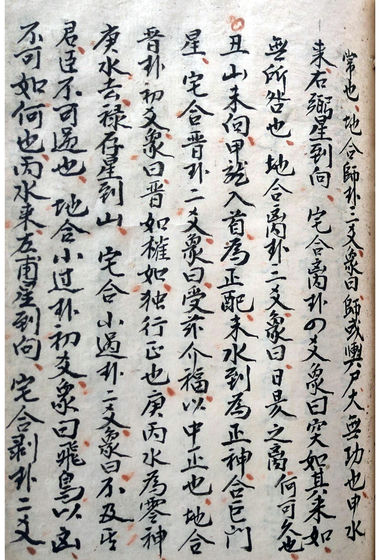 常也、地合師卦三爻象曰師或輿尸大無功也申水
来右弼星到向、宅合离卦四爻象曰突如其来如
無所咎也 地合离卦三爻象曰日昃之离何可久也
丑山未向甲龙入首為正配未水到為正神合巨門
星、宅合晋卦二爻象曰受茲介福以中正也地合
晋卦初爻象曰晋如槯如独行正也庚丙水為零神
庚水去禄存星到山 宅合小過卦二爻象曰不及其
君臣不可過也 地合小过卦初爻象曰飛鳥以凶
不可如何也丙水来左甫星到向、宅合剥卦二爻